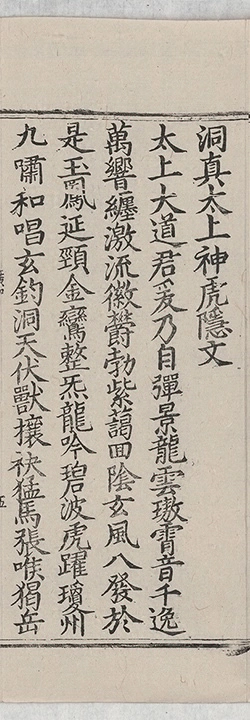 洞真太上神虎隱文
太上大道君爰乃自彈景龍雲璈霄音千逸
萬響纏激流徽欝勃紫藹回陰玄風八發於
是玉鳳延頸金鸞整炁龍吟碧波虎躍瓊州
九嘯和唱玄釣洞天伏獸攘袂猛馬張喉猖岳
五